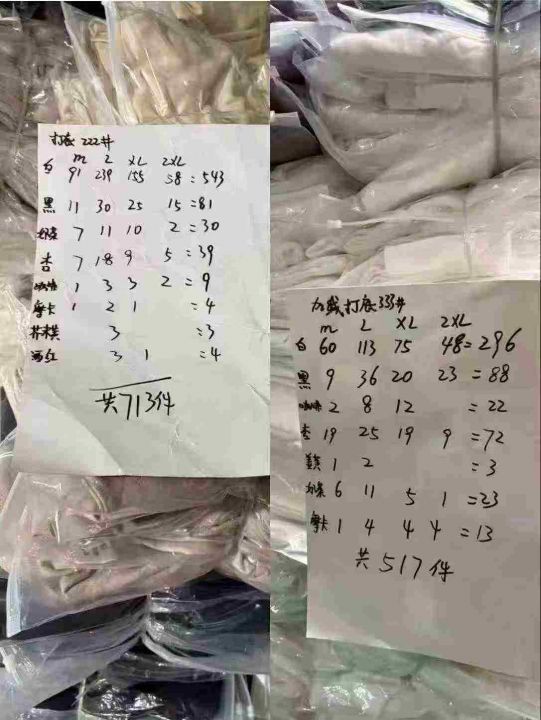 打底222#
M L XL 2XL
白 91 239 155 58=543
黑 11 30 25 15=81
7 11 10 2=30
杏 7 18 9 5=39
咖啡 1 3 3 2=9
摩卡 1 2 1 =4
芥末 3 =3
酒红 3 1 =4
共713件
加绒打底333#
M L XL 2XL
白 60 113 75 48=296
黑 9 36 20 23=88
咖啡 2 8 12 =22
杏 19 25 19 9=72
1 2 =3
6 11 5 1=23
摩卡 1 4 4 4=13
共517件